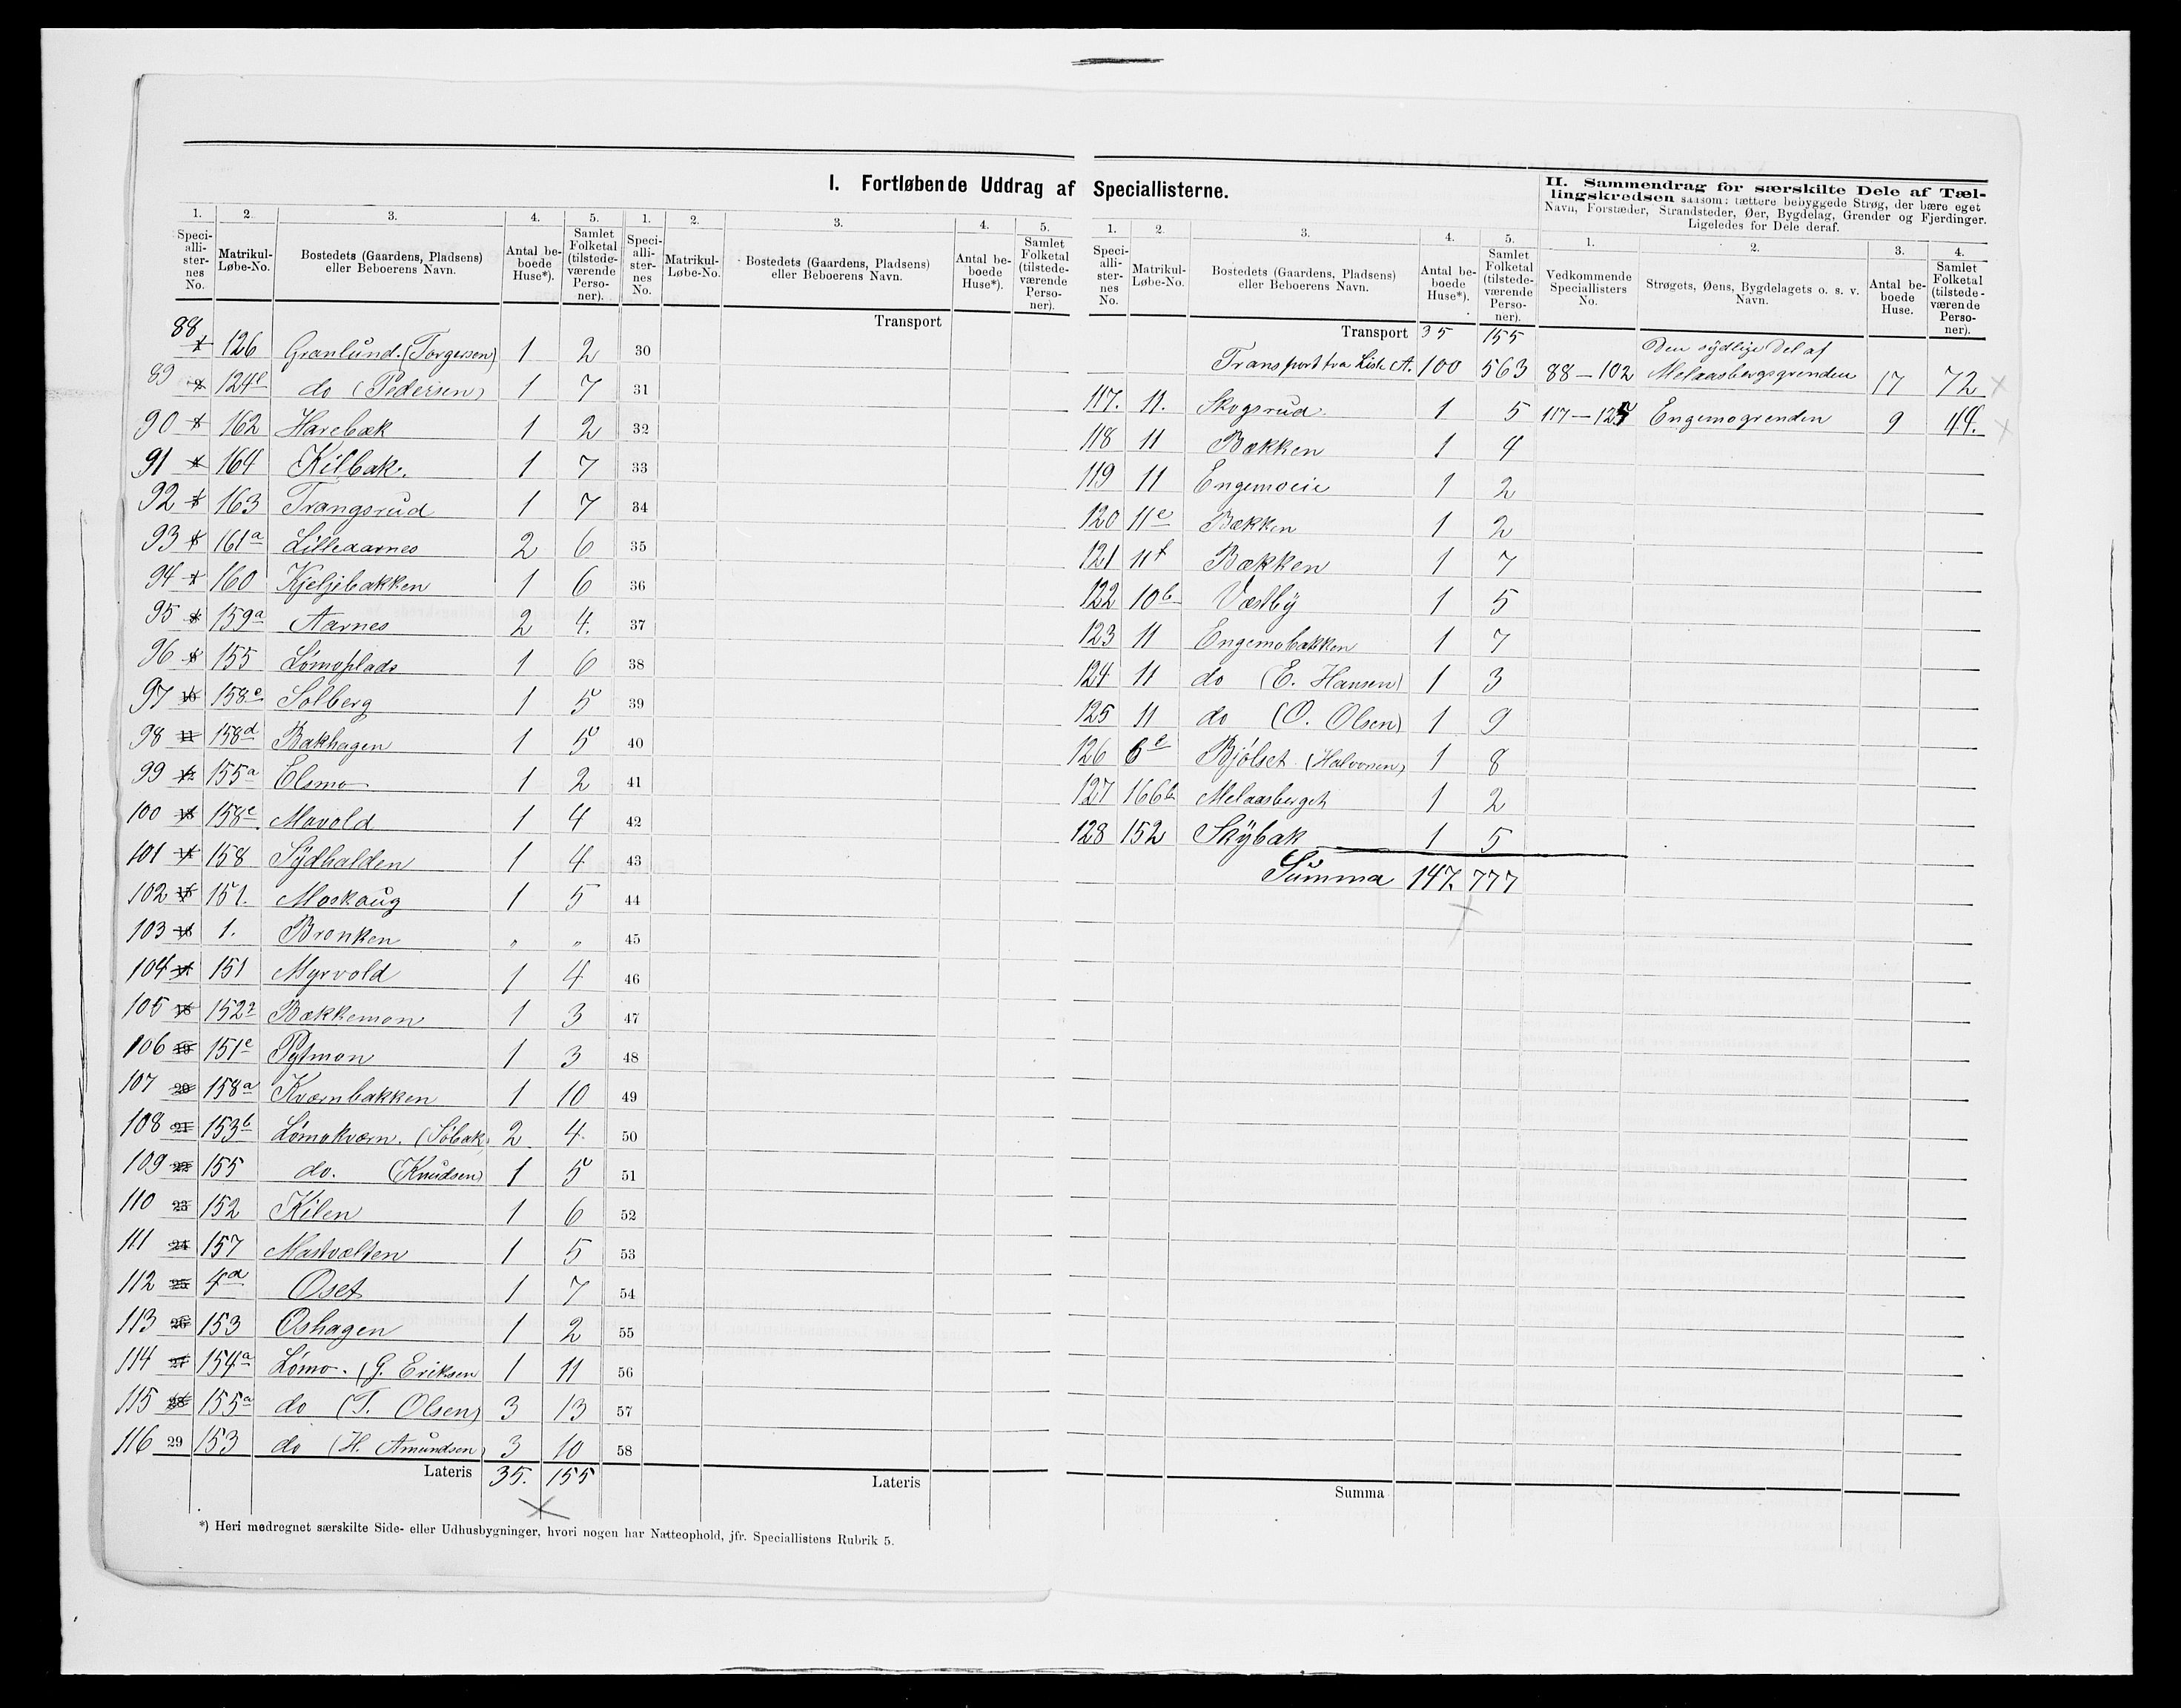 I. Fortløbende Uddrag af Speciallisterne.
1. 2. 3. 4. 5. 1. 2. 3. 4. 5.
Specialli-sternes No. Matrikul-Løbe-No. Bostedets (Gaardens, Pladsens) eller Beboerens Navn. Antal beboede Huse*). Samlet Folketal (tilstedeværende Personer). Specialli-sternes No. Matrikul-Løbe-No. Bostedets (Gaardens, Pladsens) eller Beboerens Navn. Antal beboede Huse*). Samlet Folketal (tilstedeværende Personer).
Transport
88 126 Granlund. (Torgersen) 1 2 30
89 124e do (Pedersen) 1 7 31
90 162 Harebæk 1 2 32
91 164 Kilbak. 1 7 33
92 163 Trangsrud 1 7 34
93 161a Lilleaarnes 2 6 35
94 160 Kjeljebakken 1 6 36
95 159a Aarnes 2 4. 37
96 155 Lömoplads 1 6 38
97 10 158e Solberg 1 5 39
98 11 158d Bakhagen 1 5 40
99 12 155a Elsmo 1 2 41
100 13 158c Movold 1 4 42
101 14 158 Sydhalden 1 4 43
102 15 151. Moskaug 1 5 44
103 16 1. Bronken " " 45
104 17 151 Myrvold 1 4 46
105 18 152a Bækkemon 1 3 47
106 19 151c Pytmon 1 3 48
107 20 158a Kværnbakken 1 10 49
108 21 153b Lömokværn. (Söbak) 2 4 50
109 22 155 do. (Knudsen) 1 5 51
110 23 152 Kilen 1 6 52
111 24 157 Mastvælten 1 5 53
112 25 4d Oset 1 7 54
113 26 153 Oshagen 1 2 55
114 27 154a Lömo. (G. Eriksen 1 11 56
115 28 155a do (T. Olsen) 3 13 57
116 29 153 do (H. Amundsen) 3 10 58
Lateris 35. 155 Lateris
*) Heri medregnet særskilte Side- eller Udhusbygninger, hvori nogen har Natteophold, jfr. Speciallistens Rubrik 5.
1. 2. 3. 4. 5.
Specialli-sternes No. Matrikul-Løbe-No. Bostedets (Gaardens, Pladsens) eller Beboerens Navn. Antal beboede Huse*). Samlet Folketal (tilstedeværende Personer).
Transport 35 155
Transport fra Liste A. 100 563
117. 11. Skogsrud. 1 5
118 11 Bækken 1 4
119 11 Engemoeie 1 2
120 11e Bækken 1 2
121 11f Bækken 1 7
122 10b Væstby 1 5
123 11 Engemobakken 1 7
124 11 do (E. Hansen) 1 3
125 11 do (O. Olsen) 1 9
126 6e Bjölset (Halvorsen) 1 8
127 166b Melaasberget 1 2
128 152 Skybak 1 5
Summa 147. 777
Summa
II. Sammendrag for særskilte Dele af Tællingskredsen saasom: tættere bebyggede Strøg, der bære eget
Navn, Forstæder, Strandsteder, Øer, Bygdelag, Grender og Fjerdinger.
Ligeledes for Dele deraf.
1. 2. 3. 4.
Vedkommende Speciallisters No. Strøgets, Øens, Bygdelagets o. s. v. Navn. Antal beboede Huse. Samlet Folketal (tilstedeværende Personer).
Den sydlige Del af
88-102 Melaasbergsgrenden 17 72
117-125 Engemogrenden 9 44.